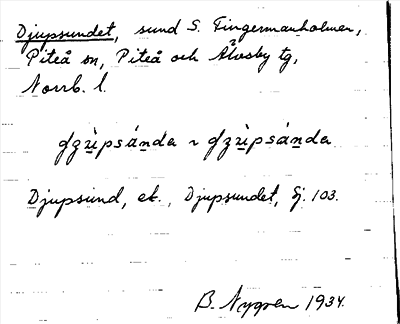 Djupsundet, sund S. Fingermanholmen,
Piteå sn, Piteå och Älvsby tg,
Norrb. l.
Djupsund, ek., Djupsundet, Gj. 103.
B. Nygren 1934.